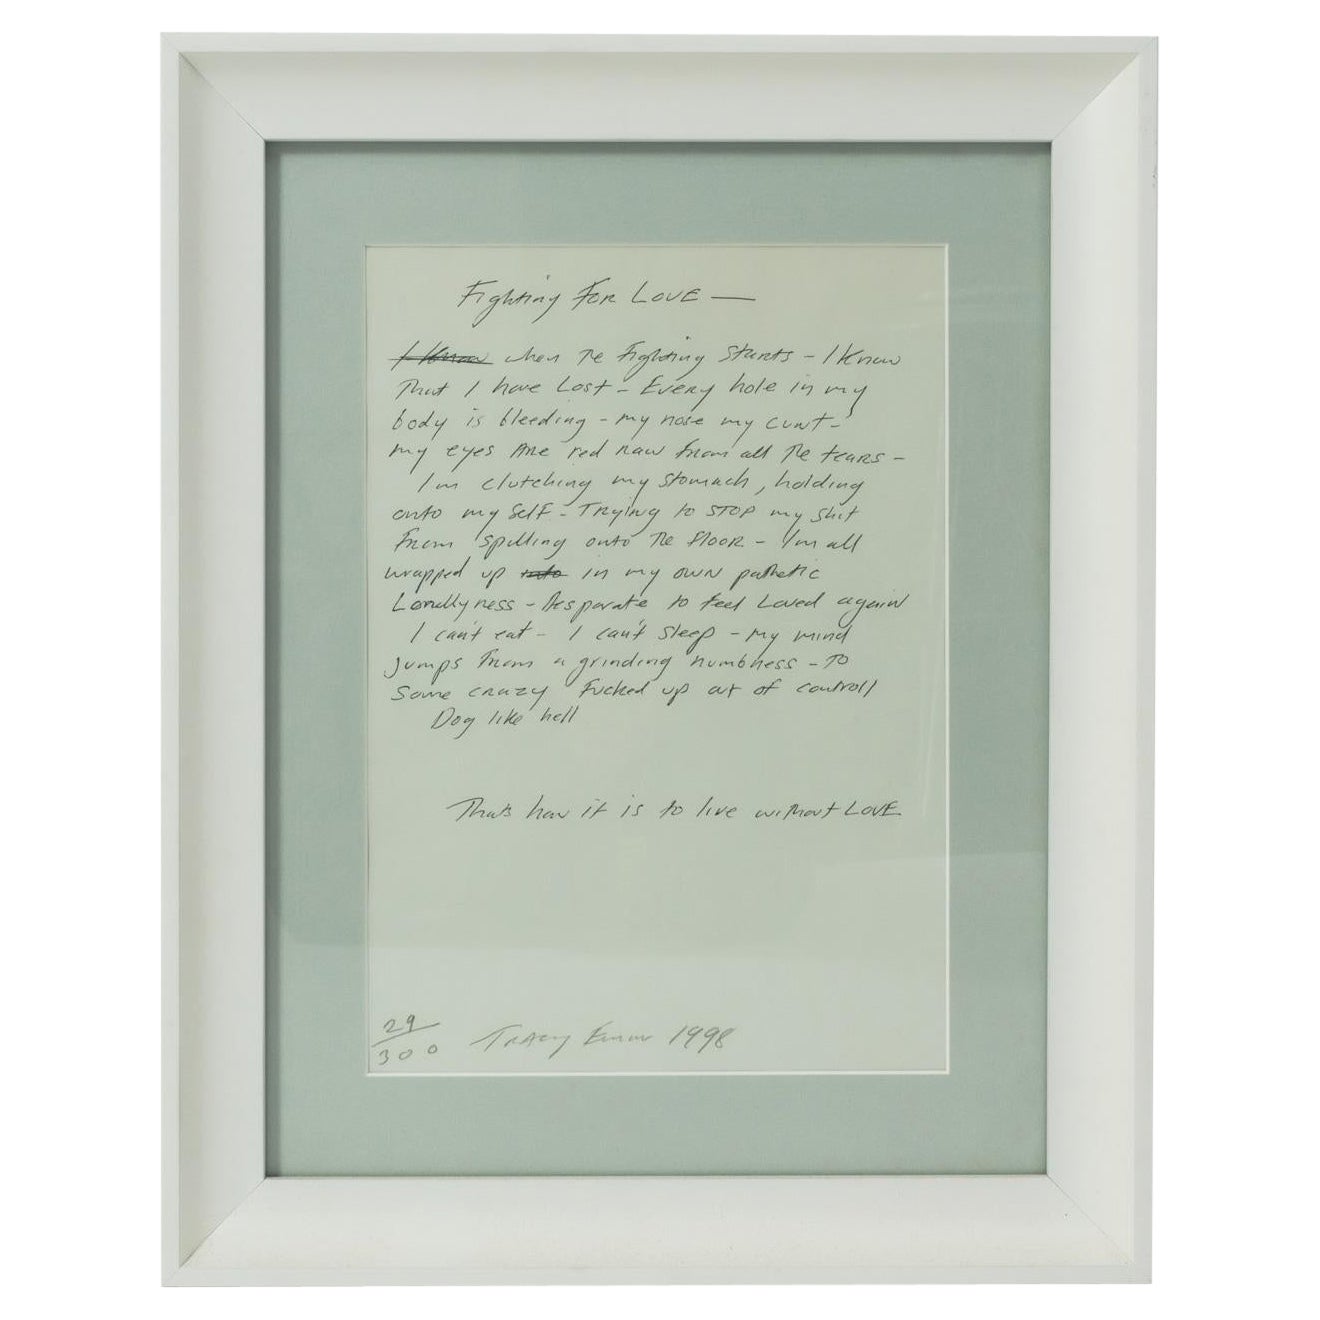 Fighting FOR LOVE —
I Know when The Fighting Starts - I Know
That I have Lost - Every hole in my
body is bleeding - my nose my cunt -
my eyes ARE red raw from all The tears -
I'm clutching my stomach, holding
onto my self - Trying to STOP my shit
From spilling onto The Floor - I'm all
wrapped up into in my own pathetic
Lonellyness - Desparate to feel Loved again
I can't eat - I can't sleep - my mind
Jumps from a grinding numbness - To
Some crazy Fucked up out of controll
Dog like hell
Thats how it is to live without LOVE
29/300 Tracey Emin 1998